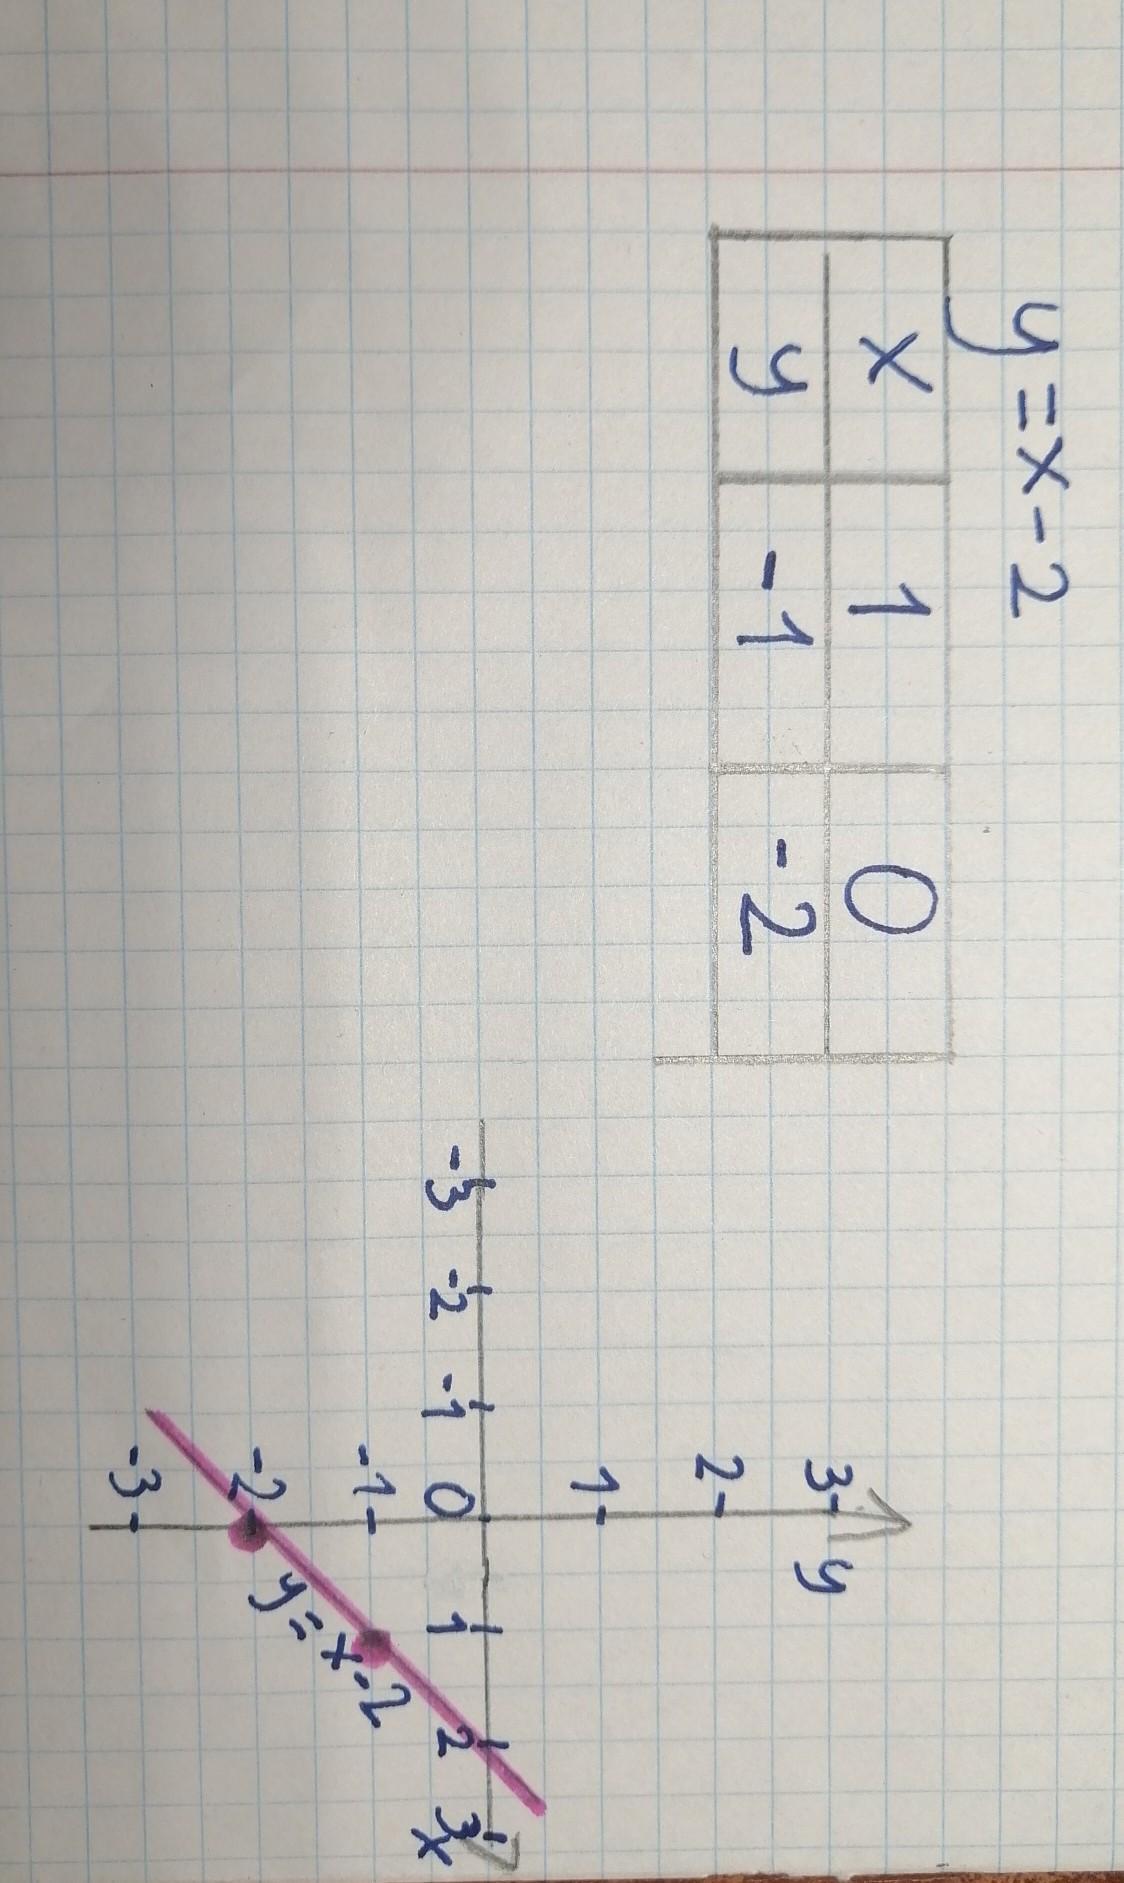 y=x-2
x 1 0
y -1 -2
y
3
2
1
-3 -2 -1 0 1 2 3
x
-1
-2
-3
y=x-2